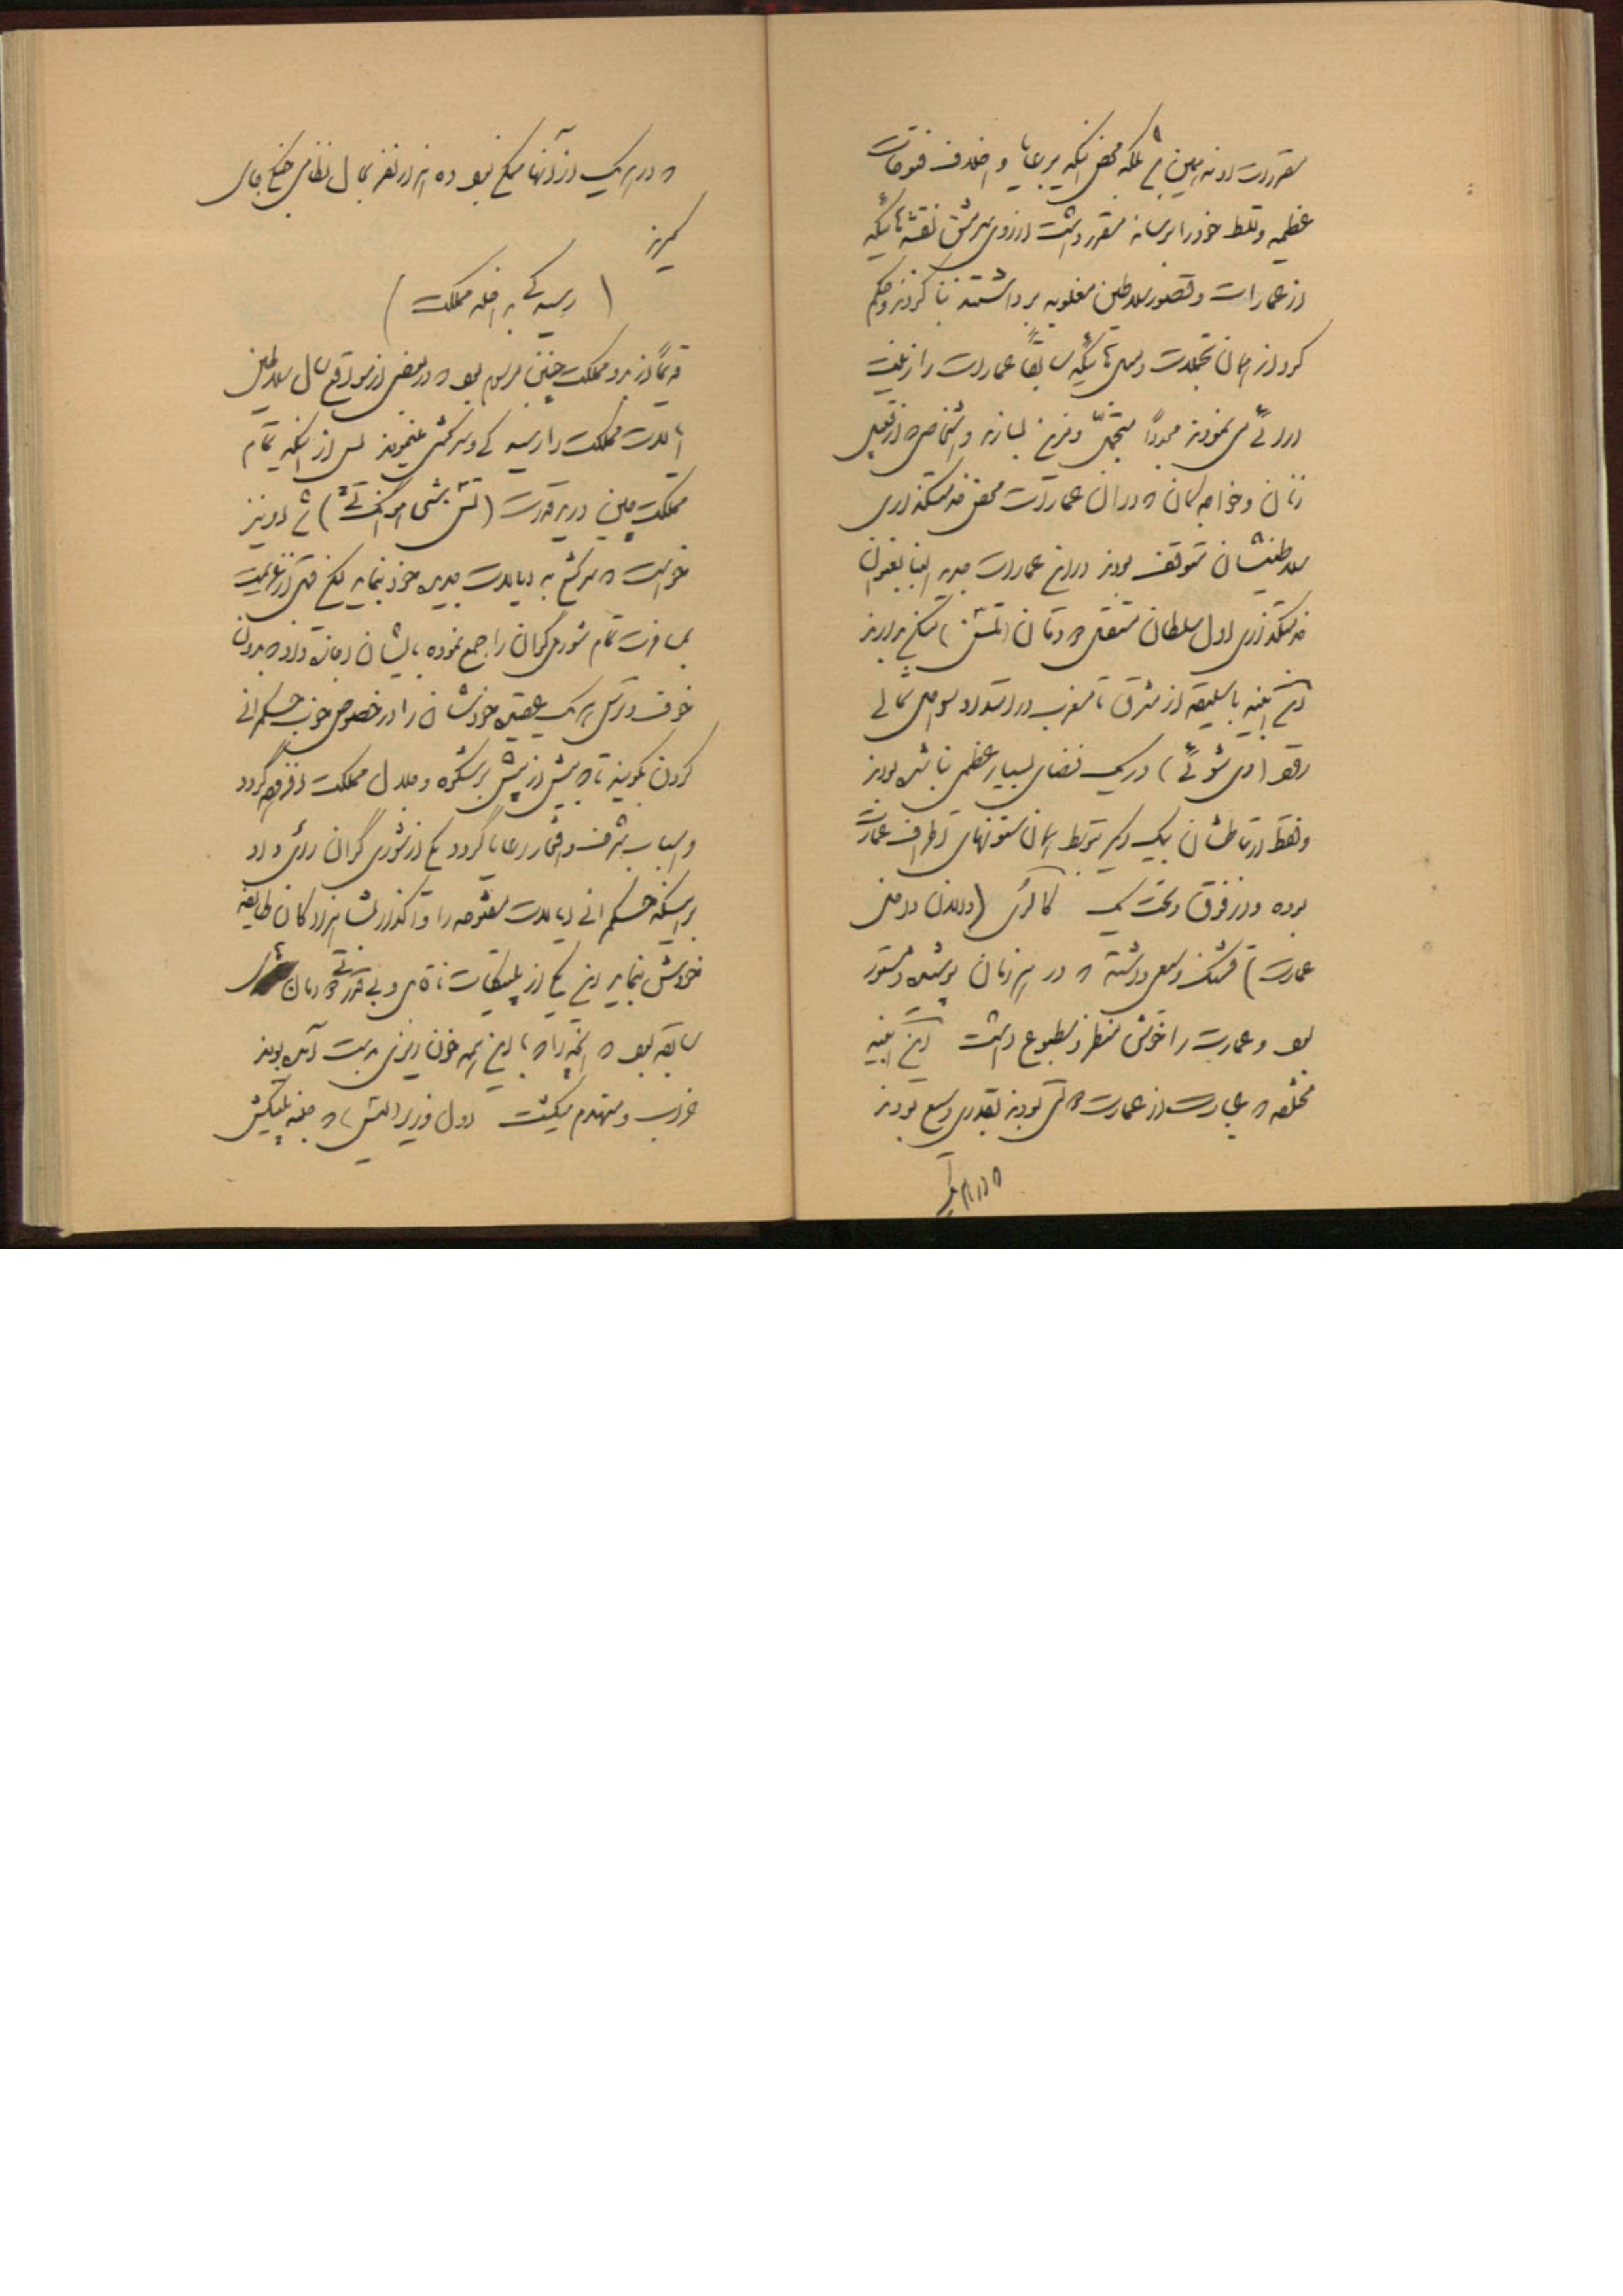 مقررات او نه همین بلکه محض اینکه بر رعایا و اخلاف فتوحات
عظیمه و تسلط خود را برساند مقرر داشت از روی سرمشق نقشه هائیکه
از عمارات و قصور سلاطین مغلوبه برداشتند بنا کردند و حکم
کرد از همان تجملات و مبلهائیکه سابقاً عمارات را زینت
می نمودند مجدداً متجمل و مزین بسازند و اشخاص از قبیل
زنان و خواجه گان که در آن عمارات محض خدمتگذاری
سلاطینشان متوقف بودند در این عمارات جدید البنا بعنوان
خدمتگذاری اول سلطان مستقل ودمان (تشن) سکنی بدارند
این ابنیه با سلیقه از مشرق تا مغرب در امتداد سواحل شمالی
رود (وی شوئی) در یک فضای بسیار عظیمی بنا شده بودند
و فقط ارتباطشان بیکدیگر توسط همان ستونهای اطراف عمارت
بوده و در فوق و تحت یک گالری (دالان داخل
عمارت) قشنگ وسیعی داشته که در هر زمان پوشیده و مستور
بود و عمارت را خوش منظر و مطبوع داشت این ابنیه
مختلفه که عبارت از عمارت بودند بقدری وسیع بودند
که در هر یک
که در هر یک از آنها ممکن بود ده هزار نفر بحال نظامی جنگی جای
گیرند
(رسیدگی به داخله مملکت)
قدیماً در نزد مملکت چین مرسوم بود که در بعضی از مواقع سال سلاطین
ایالات مملکت را رسیدگی و سرکشی مینمودند پس از اینکه تمام
مملکت چین در ید قدرت (تشن شی هوانگ تی) شد او نیز
خواست که سرکشی به ایالات جدید خود بنماید لیکن قبل از عزیمت
بمسافرت تمام شوری گران را جمع نموده بایشان اجازه داد که بدون
خوف و ترس هر یک عقیده خودشان را در خصوص خوب حکمرانی
کردن بگویند تا که بیش از پیش بر شکوه و جلال مملکت افزوده گردد
و اسباب شرف و افتخار رعایا گردد یکی از شوری گران رأی داد
بر اینکه حکمرانی ایالات مفتوحه را واگذار بشاهزادگان طایفه
خودش بنماید این یکی از پلتیکات ناقص و بی قدرتی
سابقه بود که آنچه را که با این همه خون ریزی بدست آمده بودند
خراب و منهدم میکشت اول وزیر (لیتس) که جنبه پلتیکش